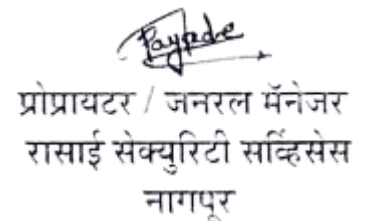 Payade
प्रोप्रायटर / जनरल मॅनेजर
रासाई सेक्युरिटी सर्व्हिसेस
नागपूर